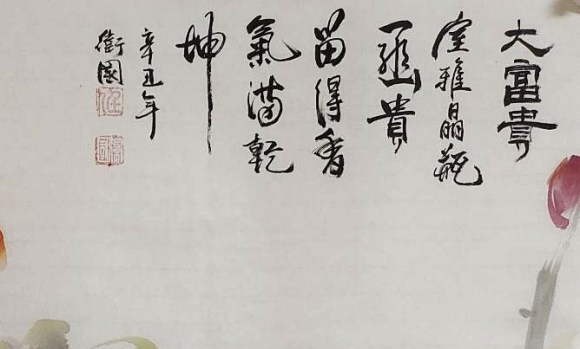 大富貴
室雅晶瓶
貴
留得香
氣满乾
坤
辛丑年
衛國